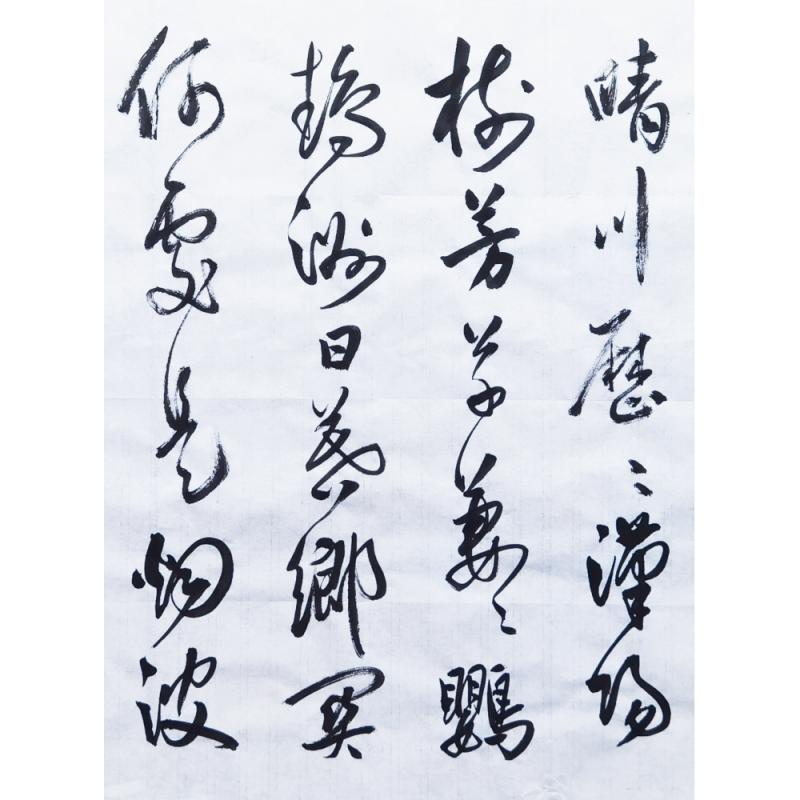 晴川歷〻漢陽
樹芳草萋〻鸚
鵡洲日暮鄉關
何處是烟波